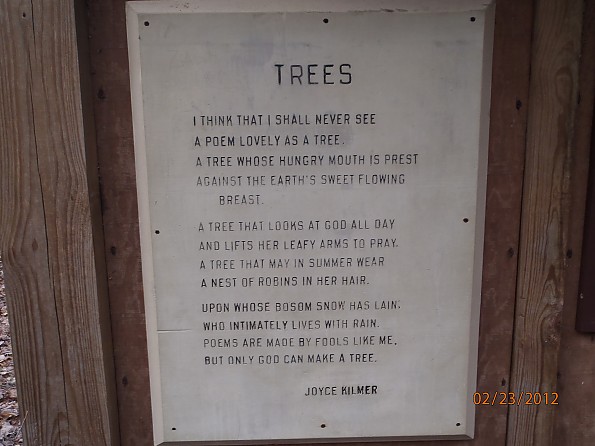 TREES
I THINK THAT I SHALL NEVER SEE
A POEM LOVELY AS A TREE.
A TREE WHOSE HUNGRY MOUTH IS PREST
AGAINST THE EARTH'S SWEET FLOWING
BREAST.
A TREE THAT LOOKS AT GOD ALL DAY
AND LIFTS HER LEAFY ARMS TO PRAY.
A TREE THAT MAY IN SUMMER WEAR
A NEST OF ROBINS IN HER HAIR.
UPON WHOSE BOSOM SNOW HAS LAIN;
WHO INTIMATELY LIVES WITH RAIN.
POEMS ARE MADE BY FOOLS LIKE ME,
BUT ONLY GOD CAN MAKE A TREE.
JOYCE KILMER
02/23/2012